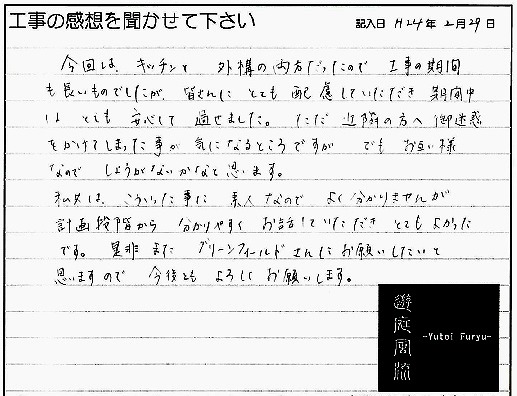 工事の感想を聞かせて下さい
記入日 H24年 2月29日
今回は、キッチンと 外構の両方だったので 工事の期間
も長いものでしたが、皆さんに とても 配慮していただき 期間中
は とても 安心して 過せました。 ただ 近隣の方へ御迷惑
をかけてしまった事が 気になるところですが でも お互い様
なので しょうがないかなと思います。
私は、こういった事に 素人なので よく分かりませんが
計画段階から 分かりやすく お話していただき とてもよかった
です。 是非 また グリーンフィールドさんにお願いしたいと
思いますので 今後とも よろしくお願いします。
遊庭風流
-Yutoi Furyu-